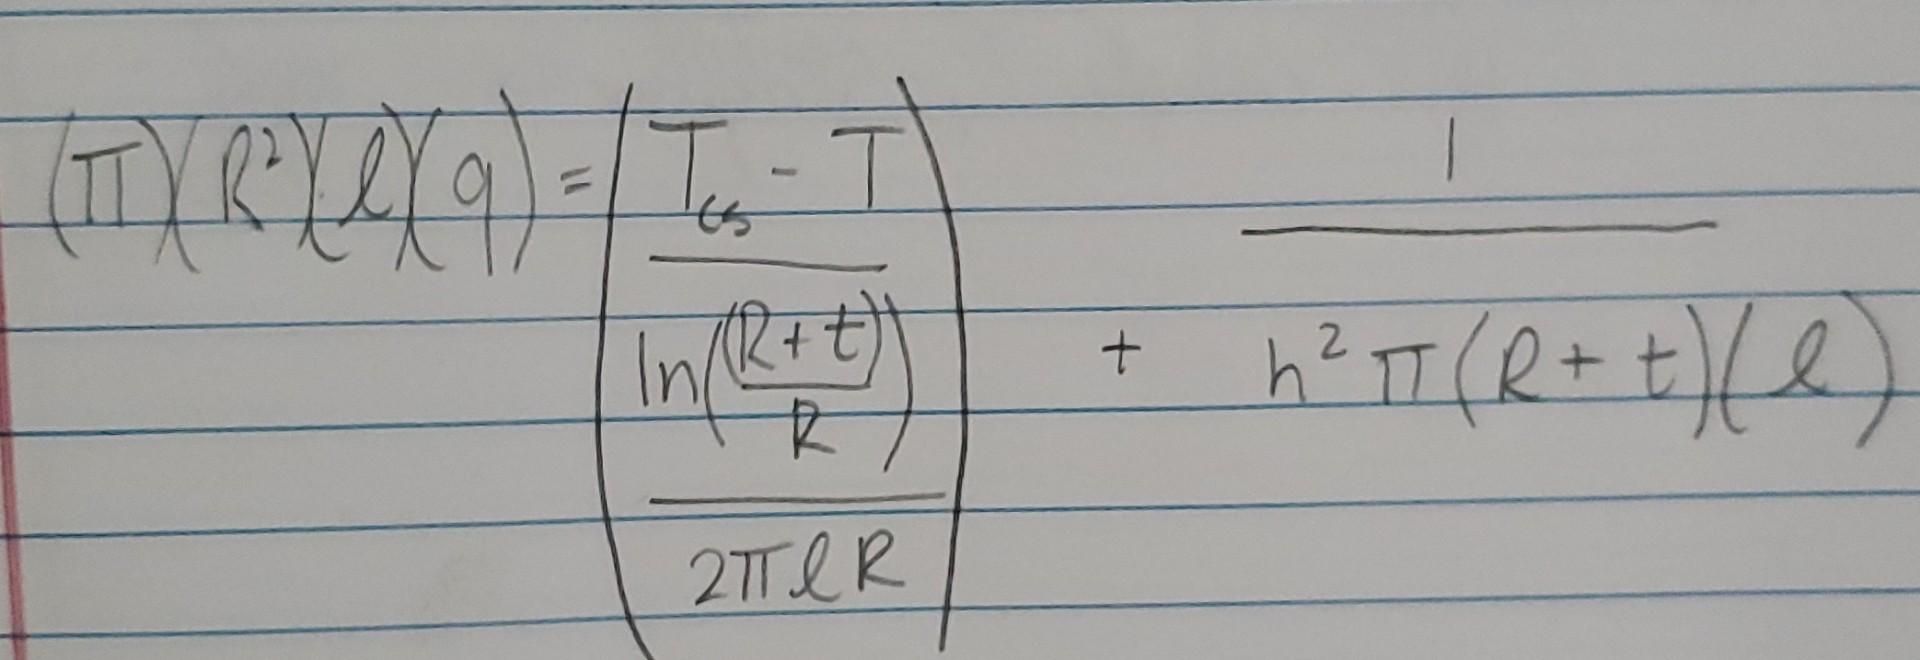 (π)(R²)(l)(q) = ( (T_cs - T) / ( ln((R+t)/R) / 2πlR ) ) + 1 / h²π(R+t)(l)